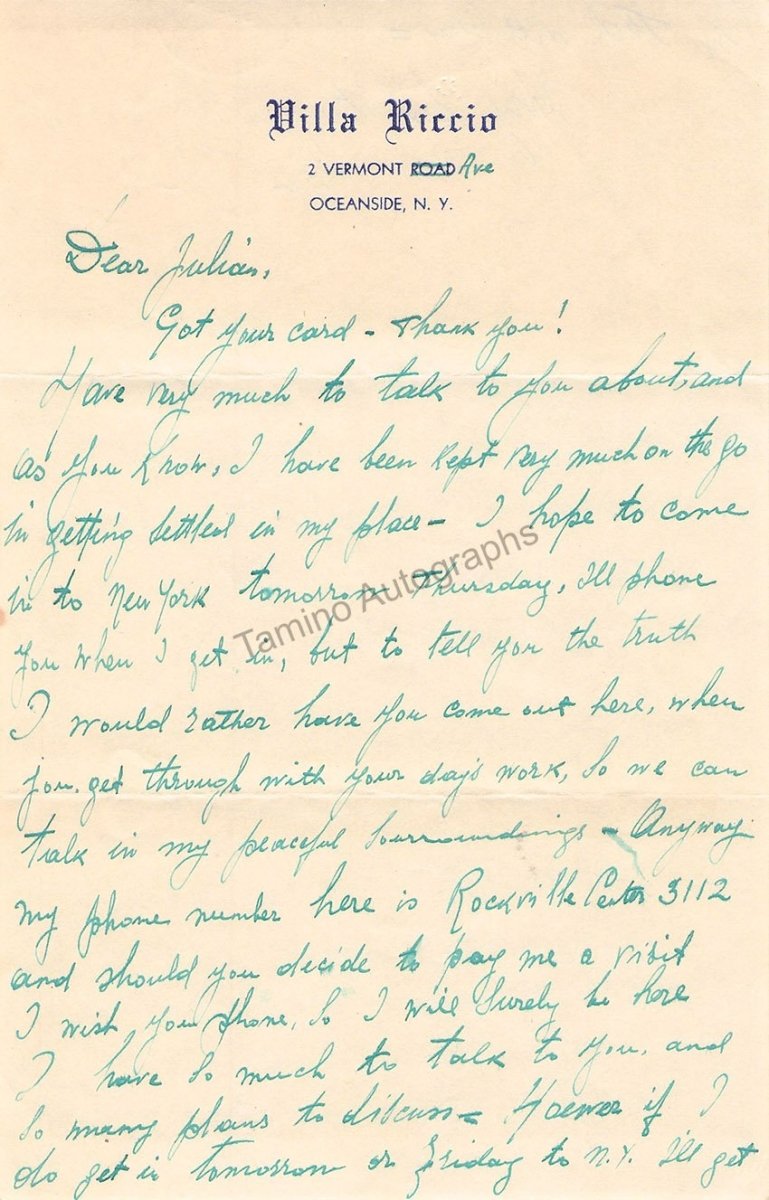 Villa Riccio
2 VERMONT ROAD Ave
OCEANSIDE, N. Y.
Dear Julian,
Got your card - Thank you!
Have very much to talk to you about, and
as you know, I have been kept very much on the go
in getting settled in my place - I hope to come
in to New York tomorrow Thursday, I'll phone
you when I get in, but to tell you the truth
I would rather have you come out here, when
you get through with your day's work, so we can
talk in my peaceful surroundings - Anyway
my phone number here is Rockville Center 3112
and should you decide to pay me a visit
I wish you phone, so I will surely be here
I have so much to talk to you, and
so many plans to discuss - Howewer if I
do get in tomorrow or Friday to N.Y. I'll get
Tamino Autographs